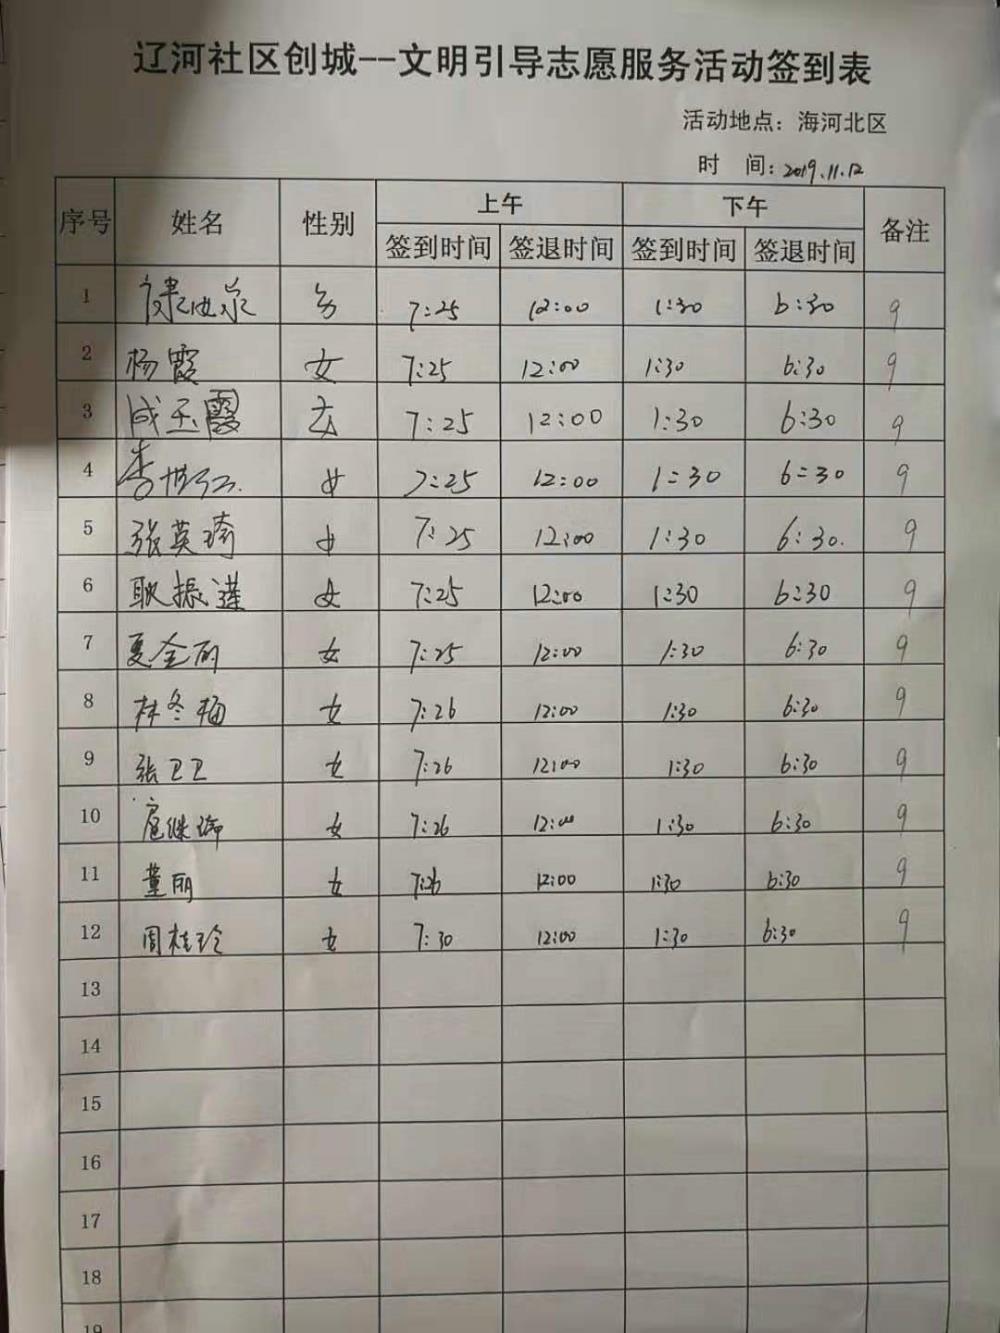 辽河社区创城--文明引导志愿服务活动签到表
活动地点：海河北区
时 间：2019.11.12
序号 姓名 性别 上午 下午 备注
签到时间 签退时间 签到时间 签退时间
1 男 7:25 12:00 1:30 6:30 9
2 杨霞 女 7:25 12:00 1:30 6:30 9
3 成玉霞 女 7:25 12:00 1:30 6:30 9
4 李 女 7:25 12:00 1:30 6:30 9
5 张英琦 女 7:25 12:00 1:30 6:30. 9
6 耿振莲 女 7:25 12:00 1:30 6:30 9
7 夏金丽 女 7:25 12:00 1:30 6:30 9
8 林冬梅 女 7:26 12:00 1:30 6:30 9
9 张卫卫 女 7:26 12:00 1:30 6:30 9
10 女 7:26 12:00 1:30 6:30 9
11 董丽 女 7:26 12:00 1:30 6:30 9
12 周桂玲 女 7:30 12:00 1:30 6:30 9
13
14
15
16
17
18
19